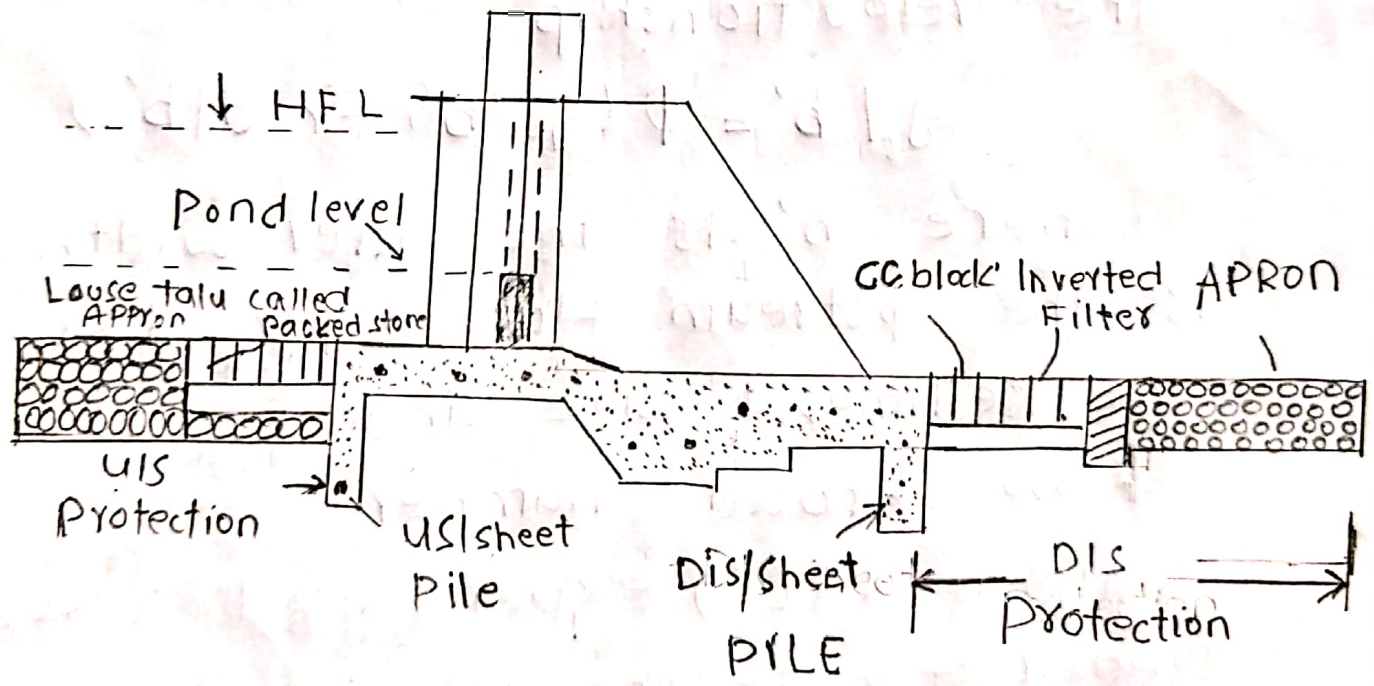 HFL
Pond level
Louse talu called
Appron
packed stone
CC.block' Inverted
Filter
APRON
U/S
Protection
US/sheet
Pile
Dis/sheet
PILE
D/S
Protection